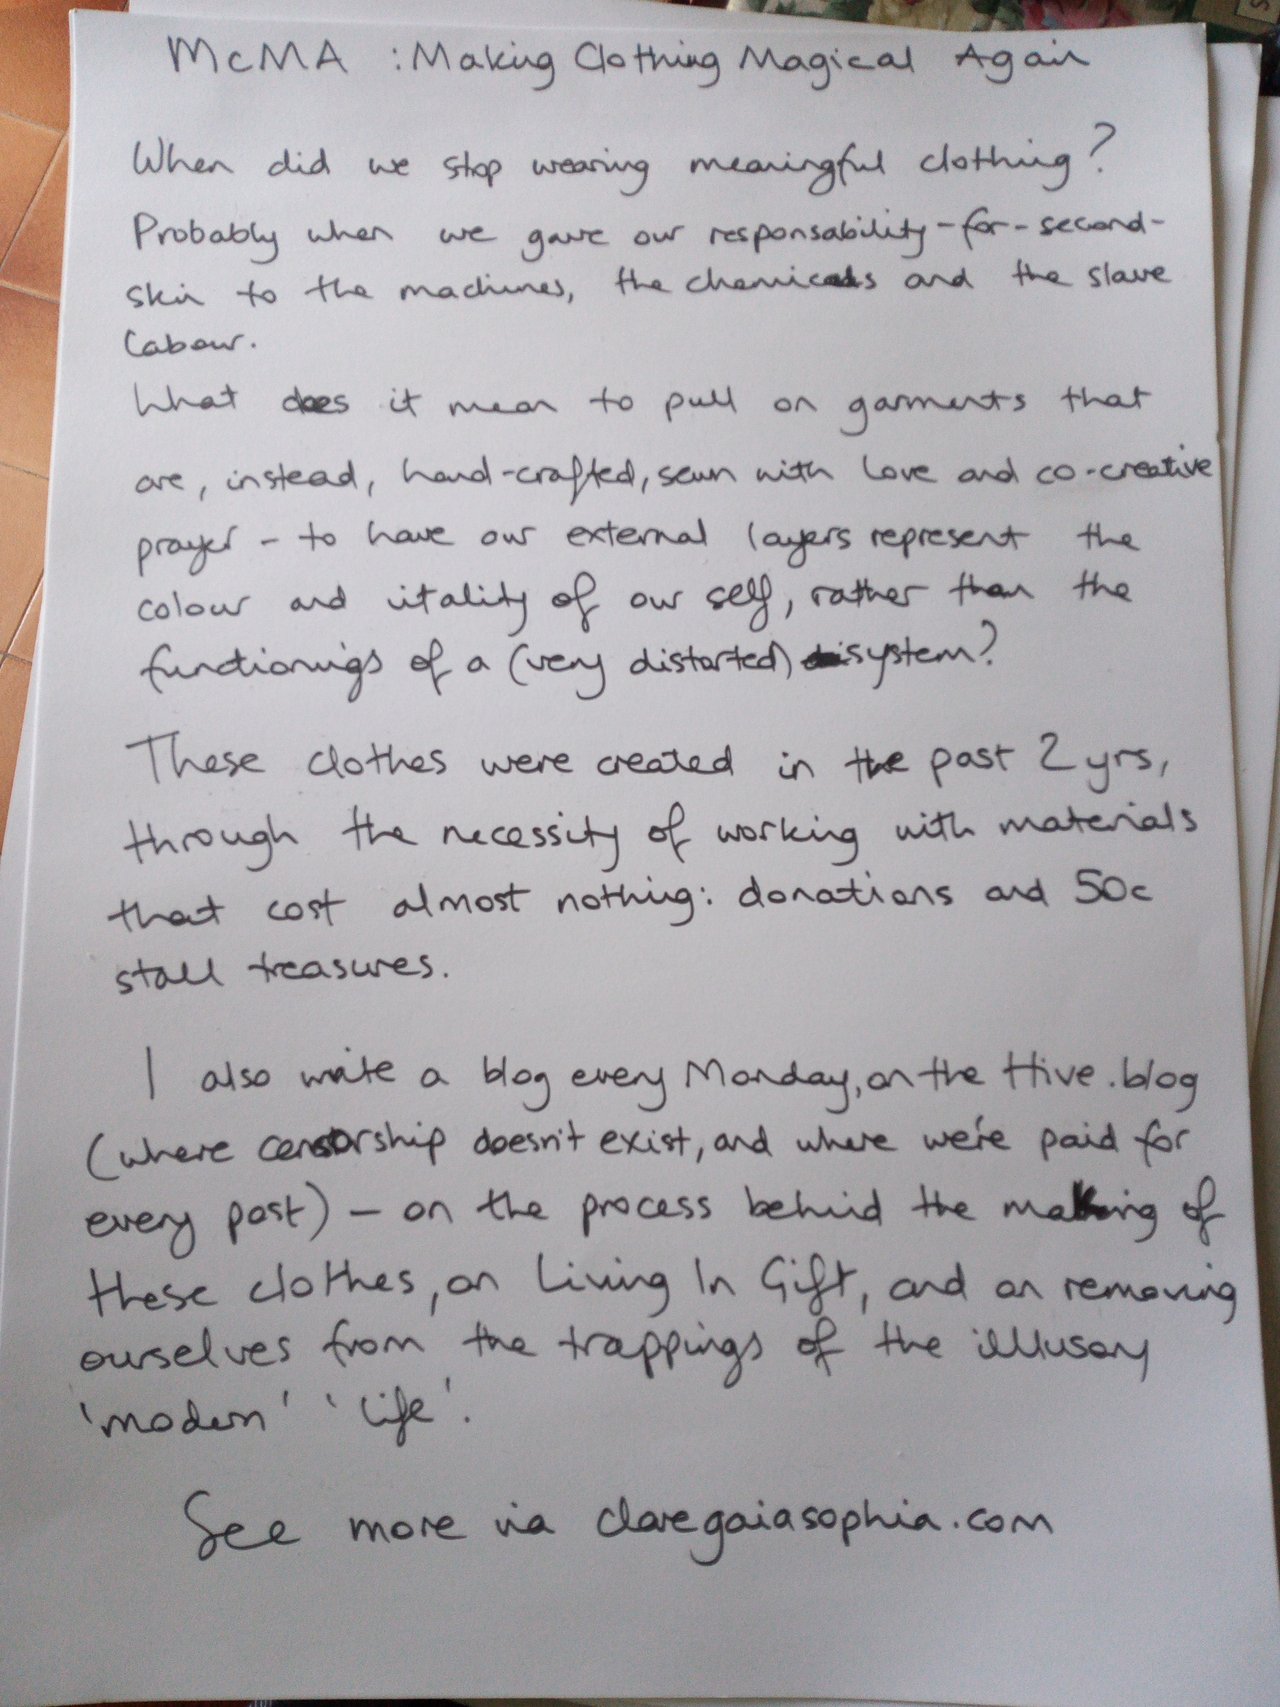 McMA : Making Clothing Magical Again
When did we stop wearing meaningful clothing?
Probably when we gave our responsability-for-second-
skin to the machines, the chemicals and the slave
labour.
What does it mean to pull on garments that
are, instead, hand-crafted, sewn with love and co-creative
prayer - to have our external layers represent the
colour and vitality of our self, rather than the
functionings of a (very distorted) system?
These clothes were created in the past 2 yrs,
through the necessity of working with materials
that cost almost nothing: donations and 50c
stall treasures.
I also write a blog every Monday, on the Hive.blog
(where censorship doesn't exist, and where we're paid for
every post) - on the process behind the making of
these clothes, on Living In Gift, and on removing
ourselves from the trappings of the illusory
'modern' 'life'.
See more via claregaiasophia.com